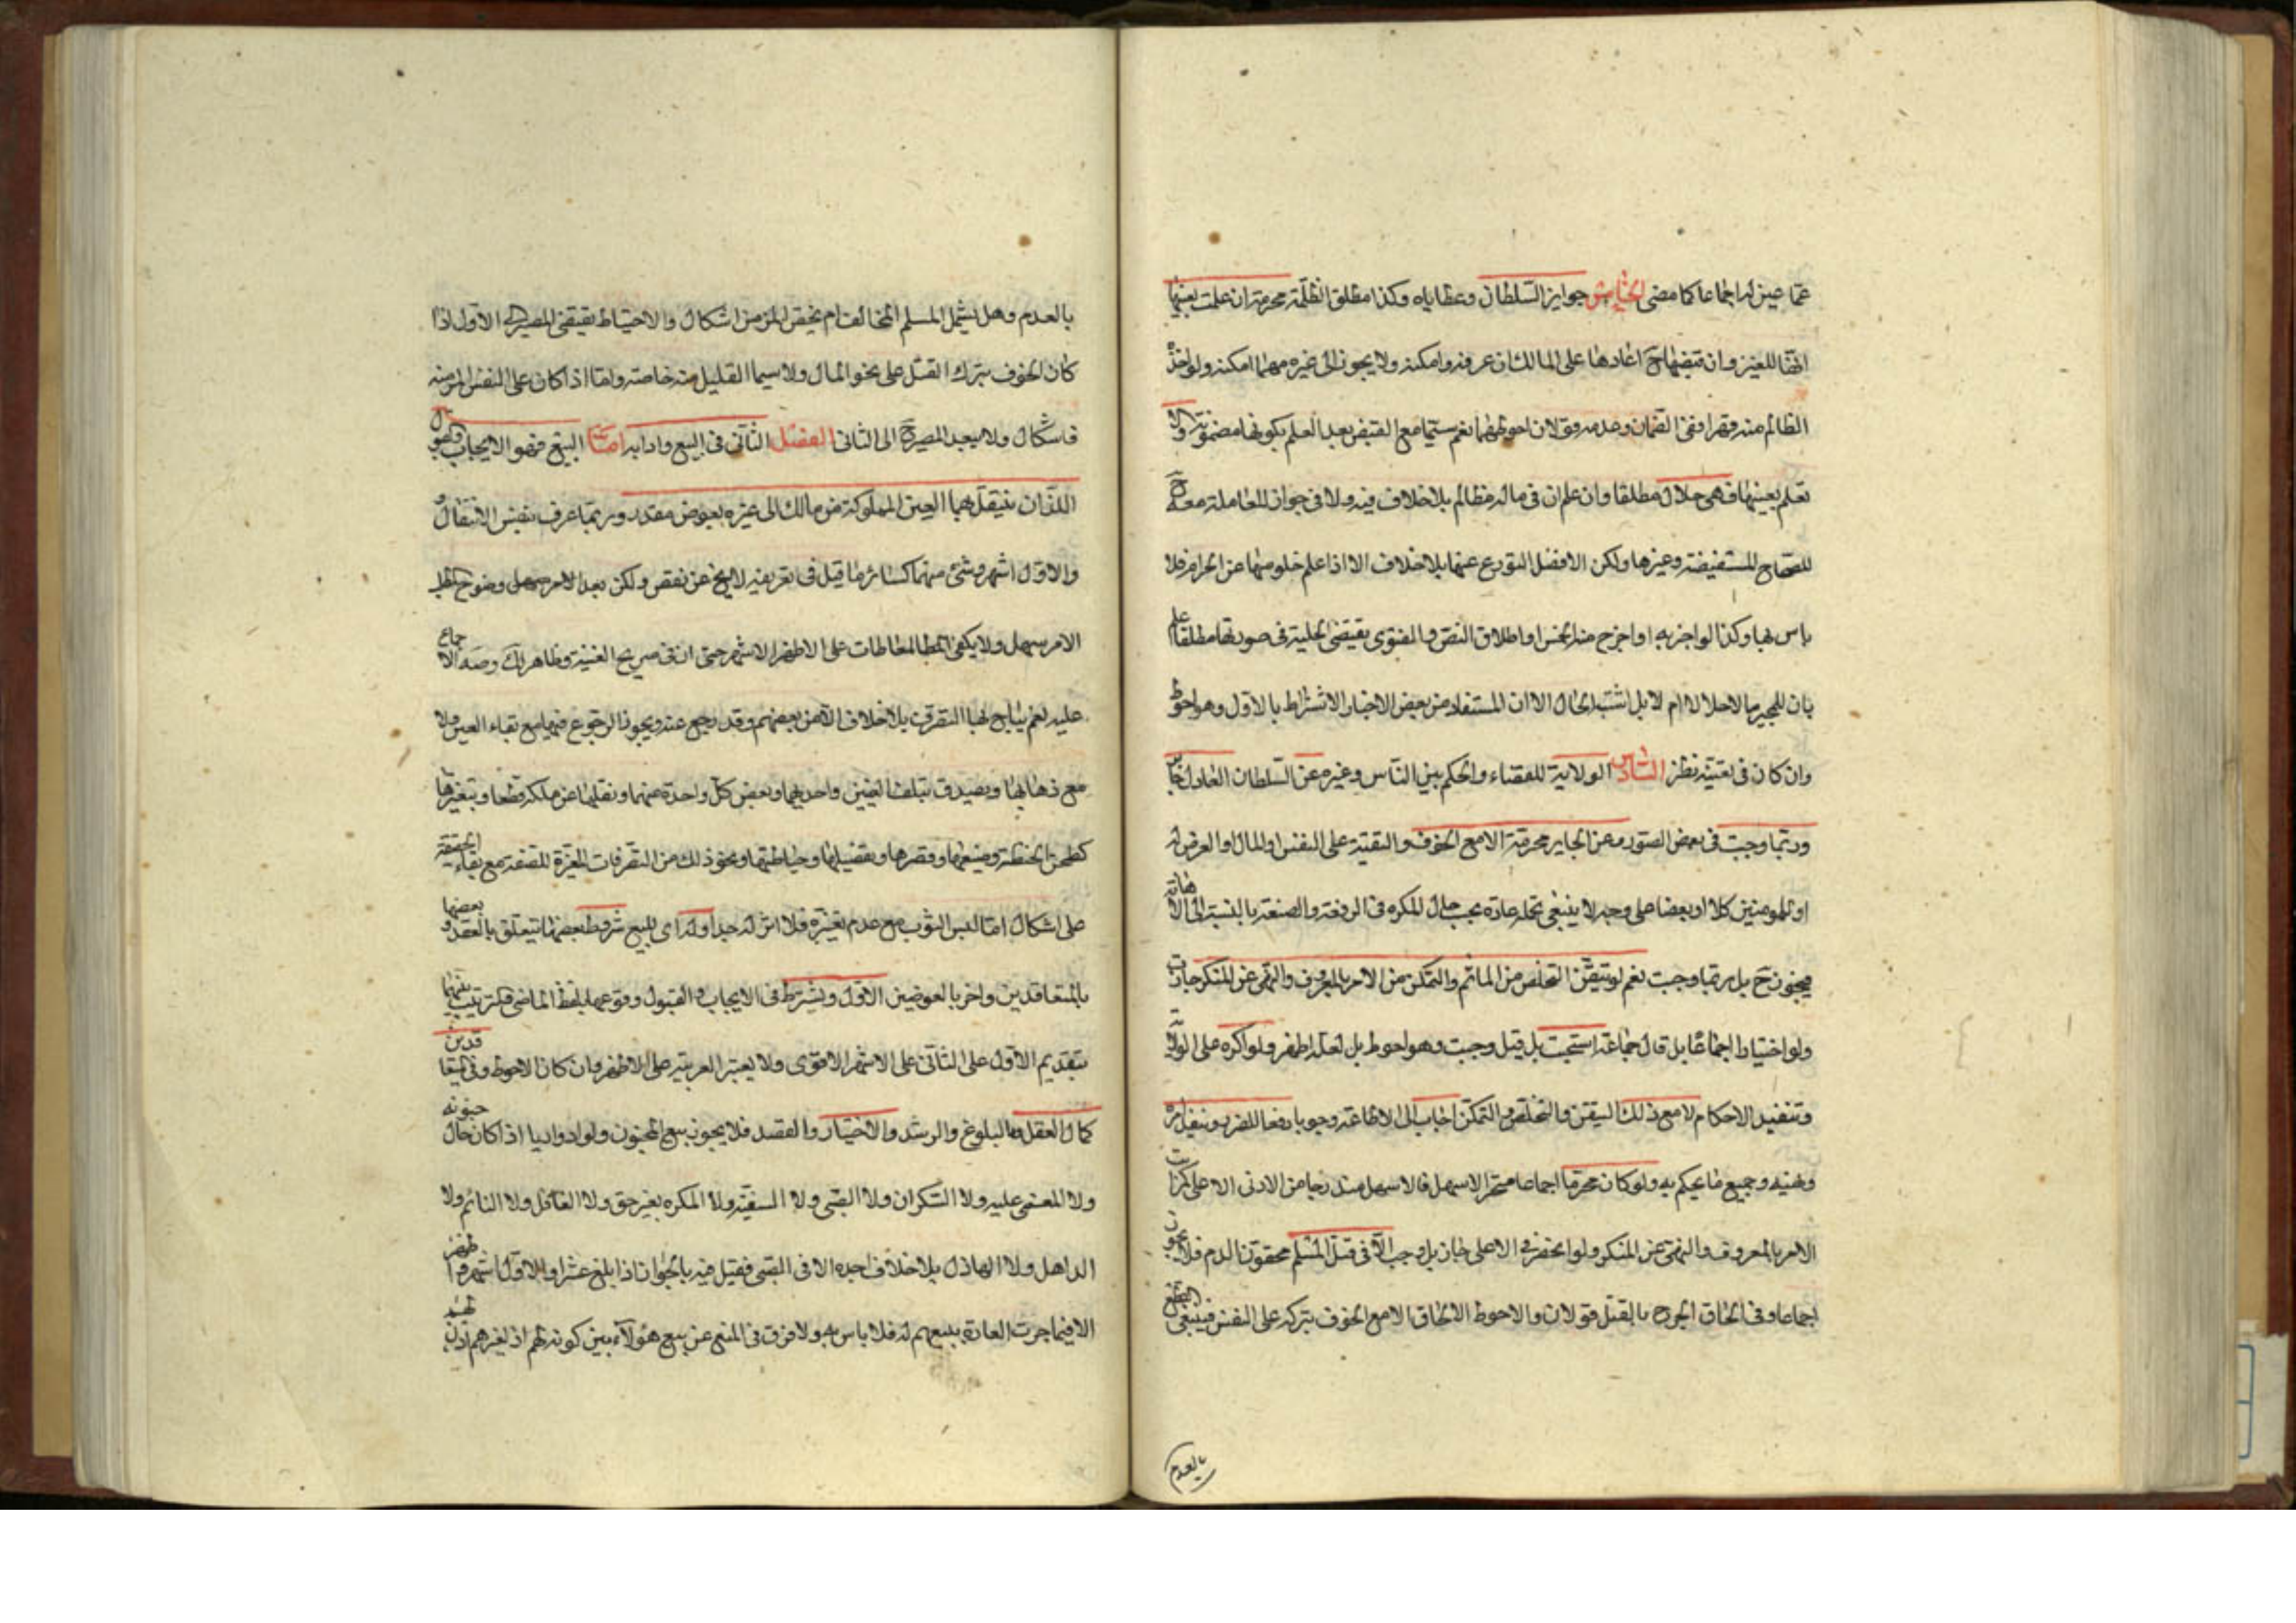 عمّا عين له اجماعا كما مضى الخامس جوايز السلطان وعطاياه وكذا مطلق الظلمة محرمة ان علمت بعينها
انها للغير وان قبضها ح اعادها على المالك ان عرفه وامكنه ولا يجوز الى غيره مهما امكنه ولو اخذ
الظالم منه قهرا ففى الضمان وعدمه قولان احوطهما نعم سيما مع القبض بعد العلم بكونها مضمونة والا
تعلم بعينها فهى حلال مطلقا وان علم ان فى ماله مظالم بلا خلاف فيه ولا فى جواز المعاملة معه ح
للصحاح المستفيضة وغيرها ولكن الافضل التورع عنها بلا خلاف الا اذا علم خلو منها عن الحرام فلا
باس بها وكذا لو اخبر به او اخرج منه الخمس واطلاق النص والفتوى يقتضى الحلية فى صورتها مطلقا علم
بان للمجيز مالا حلالا ام لا بل اشتبه الحال الا ان المستفاد من بعض الاخبار الاشتراط بالاول وهو احوط
وان كان فى تعينه نظر السادس الولاية للقضاء والحكم بين الناس وغيره عن السلطان العادل جايز
وربما وجبت فى بعض الصور وعن الجاير محرمة الا مع الخوف والتقية على النفس او المال او العرض له
او للمومنين كلا او بعضا على وجه لا ينبغى تحمله عادة بحسب حال المكره فى الرفعة والضعة بالنسبة الى الاهانة
فيجوز ح بل ربما وجبت نعم لو تيقن التخلص من الماثم والتمكن من الامر بالمعروف والنهى عن المنكر جازت
ولو اختيارا اجماعا بل قال جماعة استحبت بل قيل وجبت وهو احوط بل لعله اظهر ولو اكره على الولاية
وتنفيذ الاحكام لا مع ذلك التيقن والتخلص والتمكن اجاب الى الاطاعة وجوبا دفعا للضرر وينفذ امره
ونهيه وجميع ما يحكم به ولو كان محرما اجماعا متحرّ الاسهل فالاسهل متدرجا من الادنى الى الاعلى كمراتب
الامر بالمعروف والنهى عن المنكر ولو انحصر فى الاعلى جاز بل وجب الا فى قتل المسلم محقون الدم فلا يجوز
اجماعا وفى الحاق الجرح بالقتل قولان والاحوط الالحاق الا مع الخوف بتركه على النفس فينبغى
بالعدم
بالعدم وهل يشمل المسلم المخالف ام يختص المؤمن اشكال والاحتياط يقتضى المصير الى الاول اذا
كان الخوف بترك القتل على نحو المال ولا سيما القليل منه خاصة واما اذا كان على النفس المؤمنة
فاشكال ولا يبعد المصير ح الى الثانى الفصل الثانى فى البيع وادابه اما البيع فهو الايجاب والقبول
اللذان ينتقل بهما العين المملوكة من مالك الى غيره بعوض مقدر وربما عرف بنفس الانتقال
والاول اشهر وشئ منهما كسائر ما قيل فى تعريفه لا يخ عن نقص ولكن بعد الامر سهل وضوح
الامر سهل ولا يكفى المعاطات على الاظهر الاشهر حتى ان فى صريح الغنية وظاهر لك وضه الاجماع
عليه نعم يباح بها التصرف بلا خلاف الا من بعضهم وقد رجع عنه ويجوز الرجوع فيها مع بقاء العين ولا
مع ذهابها ويصدق بتلف العينين واحديهما وبعض كل واحدة منهما ونقلها عن ملكه قطعا وبتغيرها
كطحن الحنطة وصبغها وقصرها وتفصيلها وخياطتها ونحو ذلك من التصرفات المغيرة للصفة مع بقاء الحقيقة
على اشكال اما لبس الثوب مع عدم تغيره فلا اثر له جدا وله اى للبيع شروط بعضها يتعلق بالعقد وبعضها
بالمتعاقدين واخر بالعوضين الاول ويشترط فى الايجاب والقبول وقوعهما بلفظ الماضى وترتيب بينهما
بتقديم الاول على الثانى على الاشهر الاقوى ولا يعتبر العربية على الاظهر وان كان الاحوط وفى المتعاقدين
كمال العقل والبلوغ والرشد والاختيار والقصد فلا يجوز بيع المجنون ولو ادواريا اذا كان حال جنونه
ولا المغمى عليه ولا السكران ولا الصبى ولا السفيه ولا المكره بغير حق ولا الغافل ولا النائم ولا
الذاهل ولا الهاذل بلا خلاف اجده الا فى الصبى فقيل فيه بالجواز اذا بلغ عشرا والاول اشهر واظهر
الا فيما جرت العادة ببيعهم له فلا باس به ولا فرق فى المنع عن بيع هؤلاء بين كونه لهم اذ لغيرهم